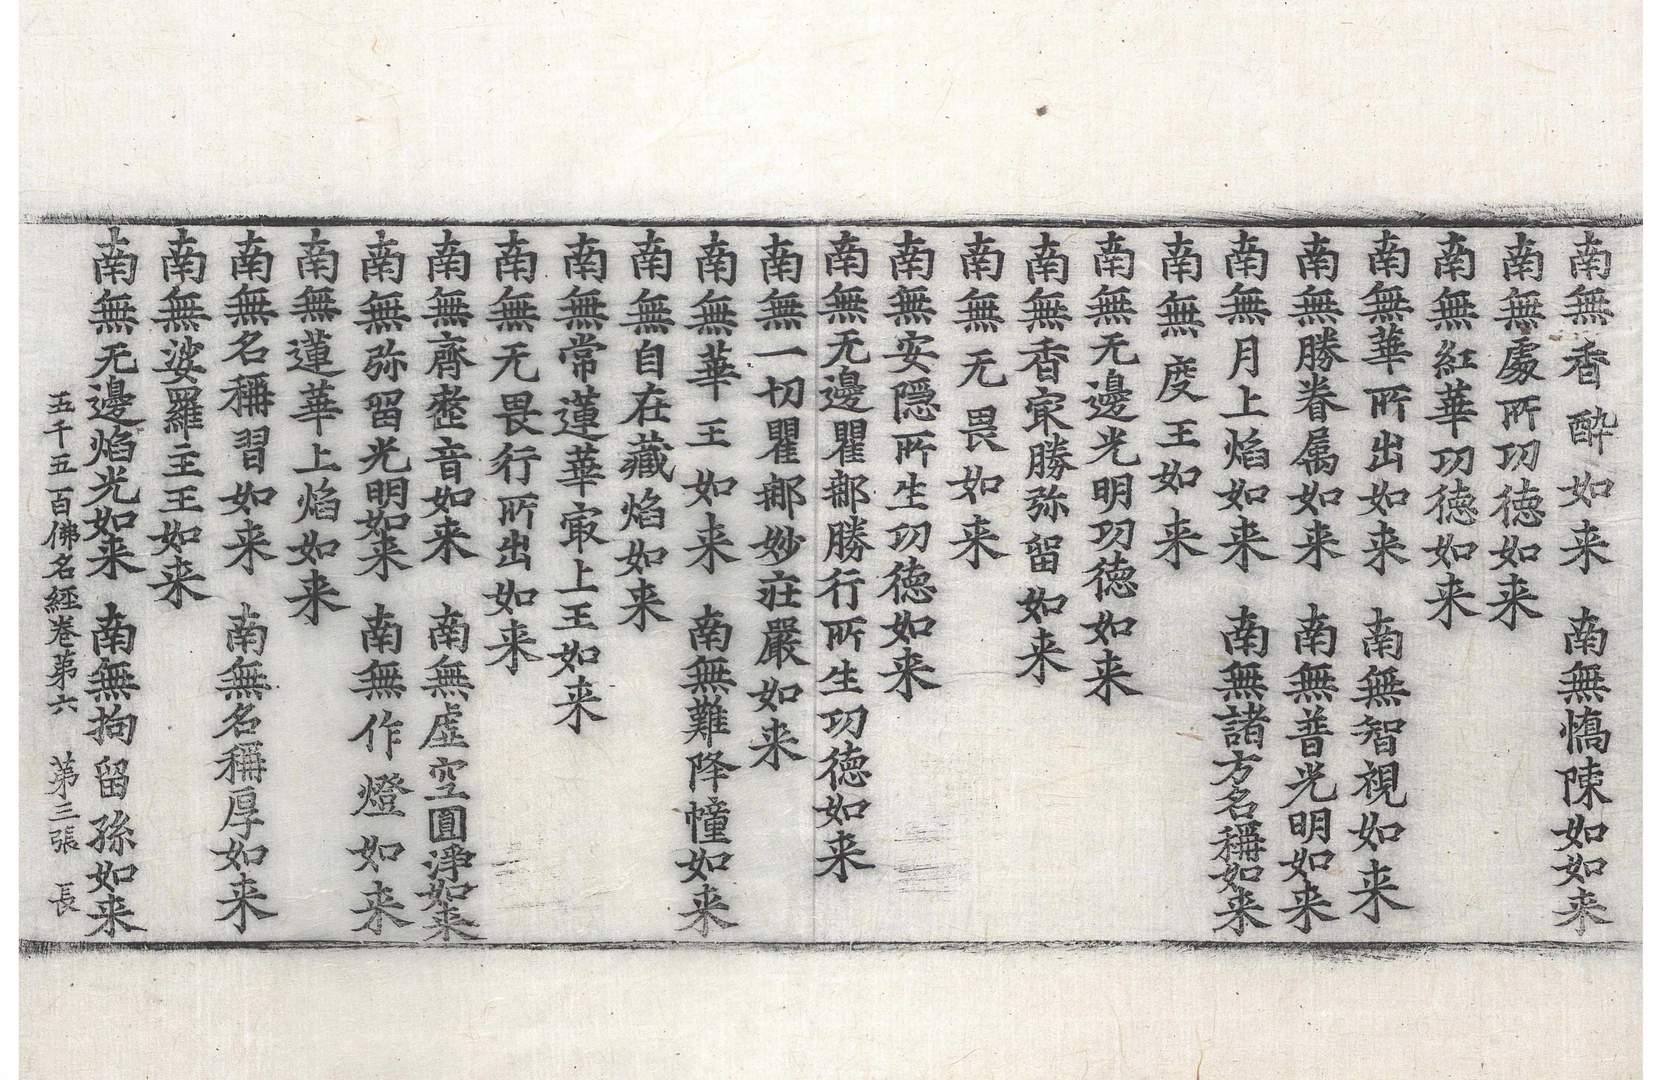 南無香醉如来　南無憍陳如如来
南無處所功德如来
南無紅華功德如来
南無華所出如来　南無智視如来
南無勝眷属如来　南無普光明如来
南無月上焰如来　南無諸方名稱如来
南無度王如来
南無无邊光明功德如来
南無香㝡勝弥留如来
南無无畏如来
南無安隱所生功德如来
南無无邊瞿鄅勝行所生功德如来
南無一切瞿鄅妙莊嚴如来
南無華王如来　南無難降幢如来
南無自在藏焰如来
南無常蓮華㝡上王如来
南無无畏行所出如来
南無齊整音如来　南無虛空圓淨如来
南無弥留光明如来　南無作燈如来
南無蓮華上焰如来
南無名稱習如来　南無名稱厚如来
南無娑羅主王如来
南無无邊焰光如来　南無拘留孫如来
五千五百佛名經卷第六　第三張　長